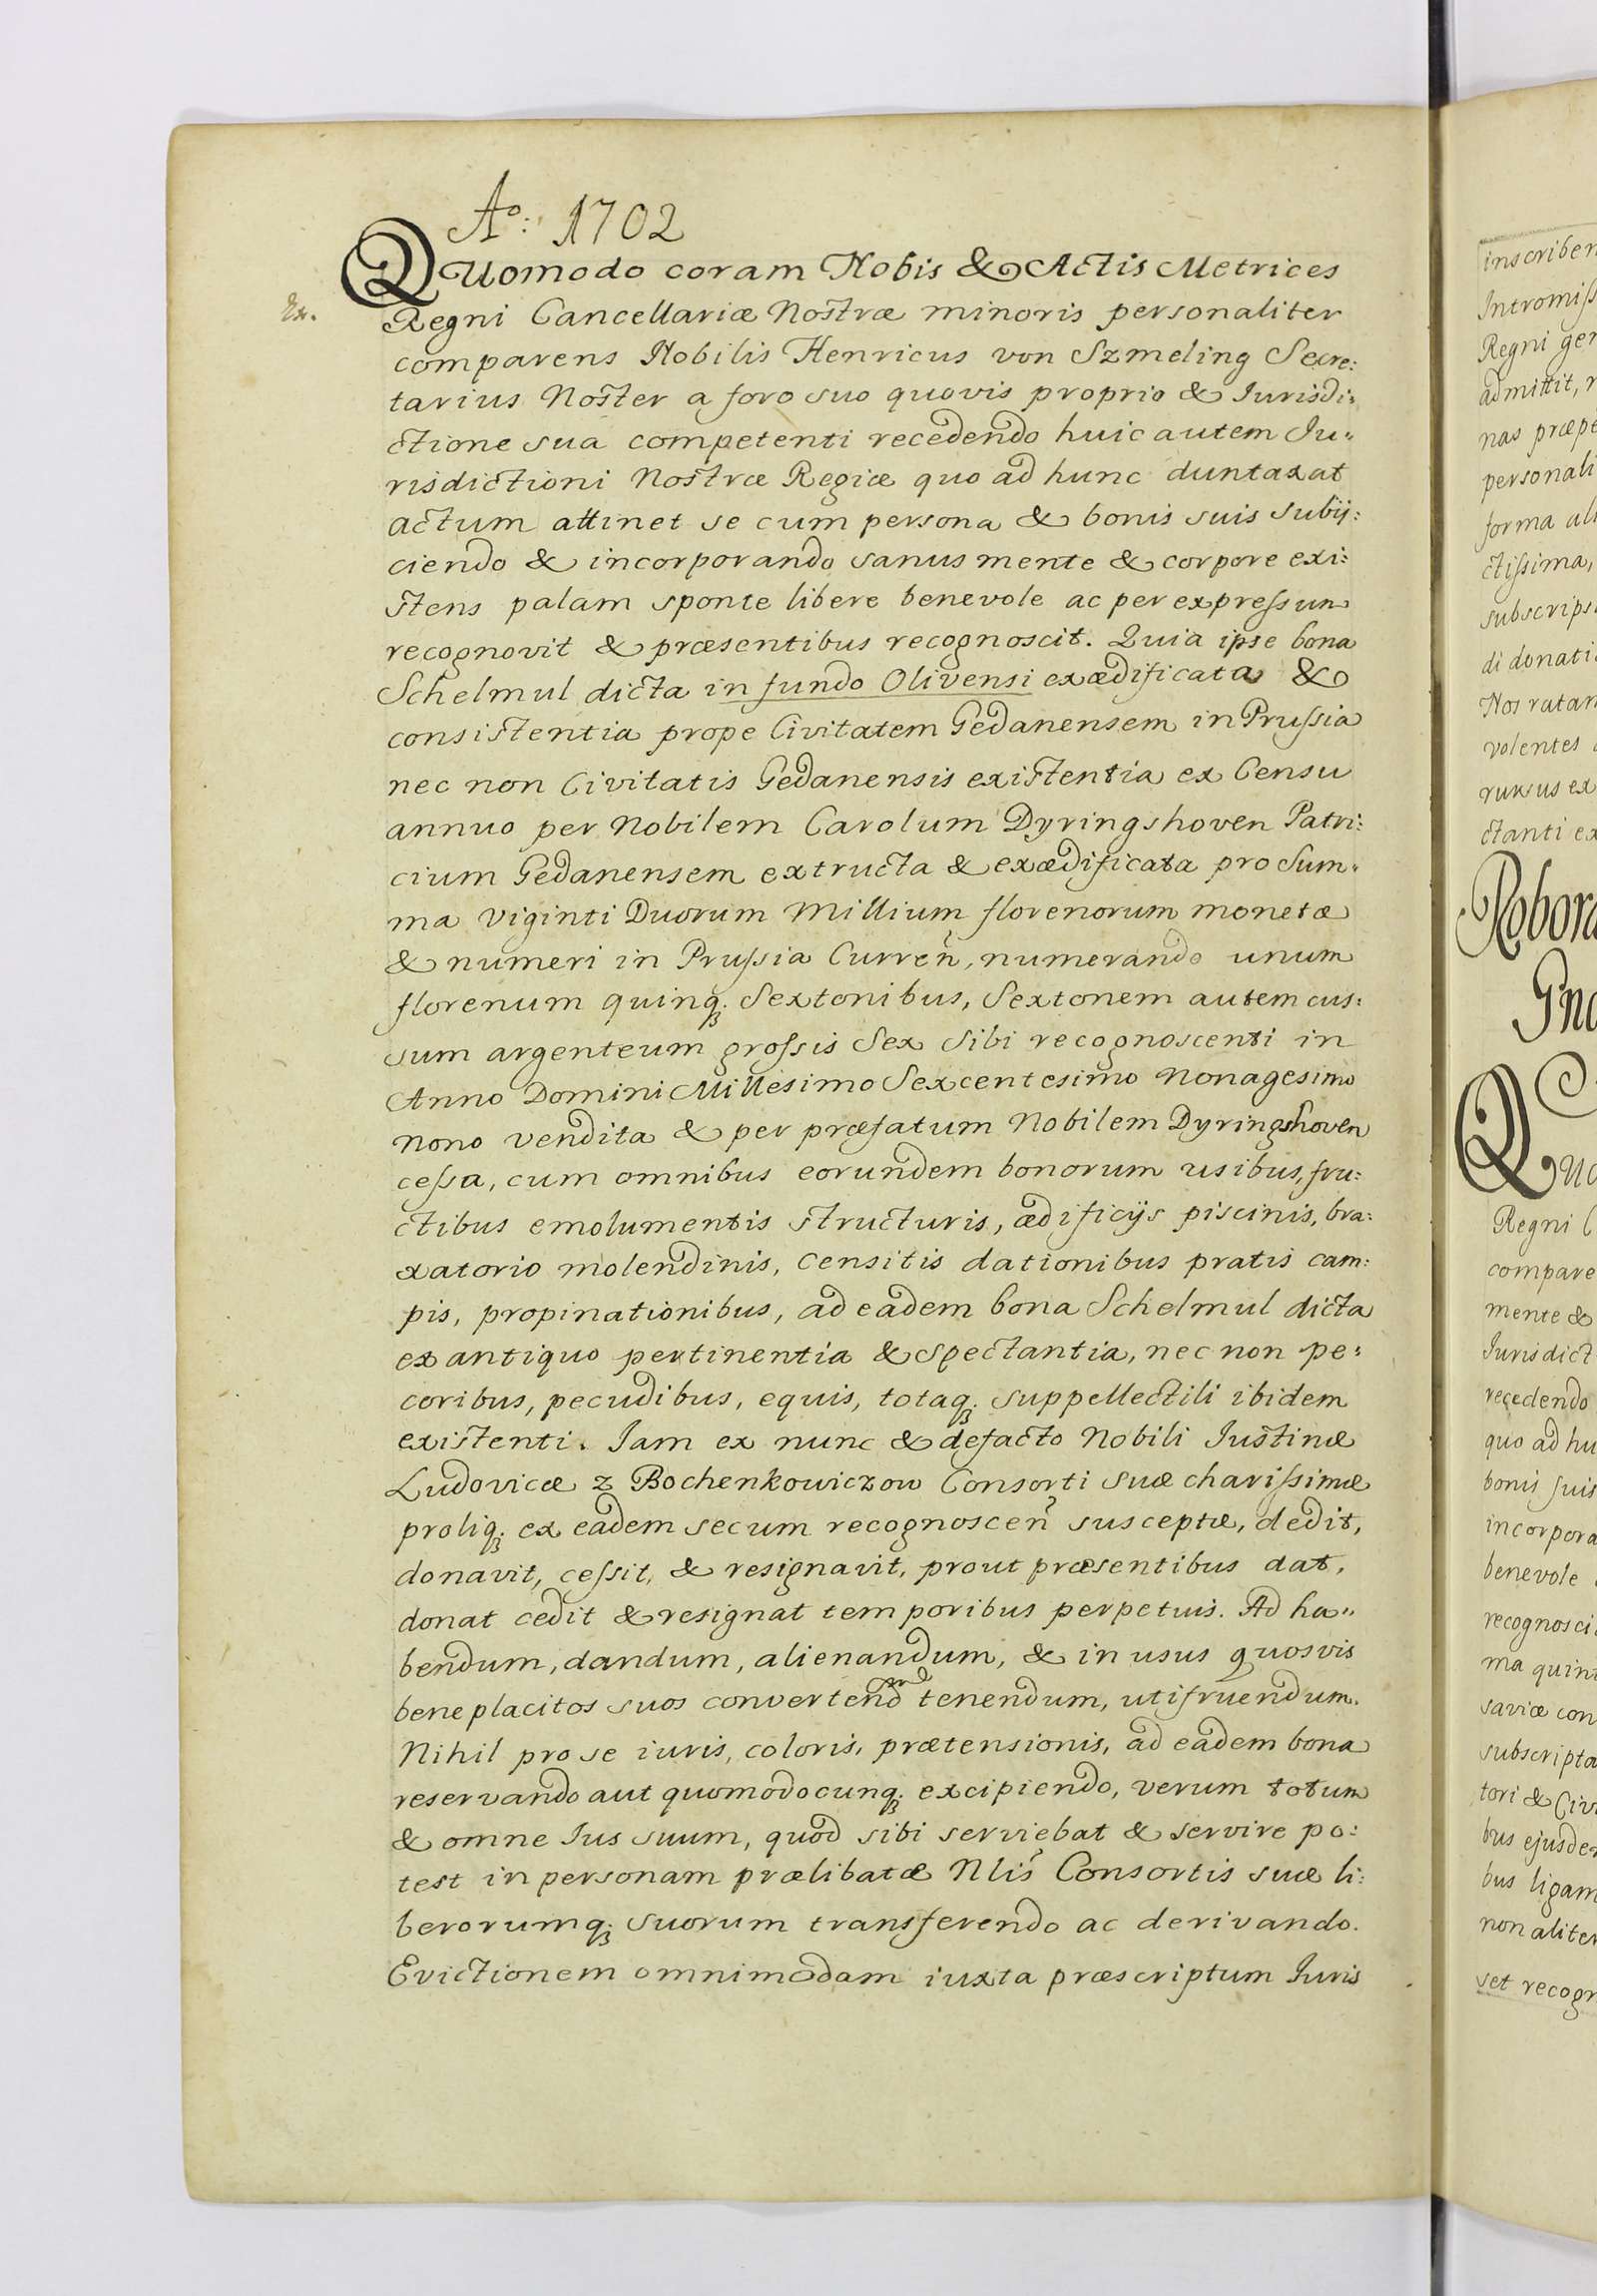 Aº: 1702
QUomodo coram Nobis & Actis Metrices
Regni Cancellariæ Nostræ minoris personaliter
comparens Nobilis Henricus von Szmeling Secre:
tarius Noster a foro suo quovis proprio & Iurisdi:
ctione sua competenti recedendo huic autem Iu:
risdictioni Nostræ Regiæ quo ad hunc duntaxat
actum attinet se cum persona & bonis suis subij:
ciendo & incorporando sanus mente & corpore exi:
stens palam sponte libere benevole ac per expressum
recognovit & præsentibus recognoscit. Quia ipse bona
Schelmul dicta in fundo Olivensi exædificata &
consistentia prope Civitatem Gedanensem in Prussia
nec non Civitatis Gedanensis existentia ex Censu
annuo per Nobilem Carolum Dyringshoven Patri:
cium Gedanensem extructa & exædificata pro Sum:
ma Viginti Duorum Millium florenorum monetæ
& numeri in Prussia Curren̄, numerando unum
florenum quinq; Sextonibus, Sextonem autem cus:
sum argenteum grossis Sex Sibi recognoscenti in
Anno Domini Millesimo Sexcentesimo Nonagesimo
nono vendita & per præfatum Nobilem Dyringshoven
cessa, cum omnibus eorundem bonorum usibus, fru:
ctibus emolumentis structuris, ædificijs piscinis, bra:
xatorio molendinis, Censitis dationibus pratis cam:
pis, propinationibus, ad eadem bona Schelmul dicta
ex antiquo pertinentia & spectantia, nec non pe:
coribus, pecudibus, equis, totaq; suppellectili ibidem
existenti. Iam ex nunc & defacto Nobili Iustinæ
Ludovicæ z Bochenkowiczow Consorti suæ charissimæ
proliq; ex eadem secum recognoscen̄ susceptæ, dedit,
donavit, cessit, & resignavit, prout præsentibus dat,
donat cedit & resignat temporibus perpetuis. Ad ha:
bendum, dandum, alienandum, & in usus quosvis
beneplacitos suos convertend tenendum, utifruendum.
Nihil pro se iuris, coloris, prætensionis, ad eadem bona
reservando aut quomodocunq; excipiendo, verum totum
& omne Ius suum, quod sibi serviebat & servire po:
test in personam prælibatæ Nlis Consortis suæ li:
berorumq; suorum transferendo ac derivando.
Evictionem omnimodam iuxta præscriptum Iuris
inscriben
Intromiss
Regni ger
admittit,
nas præpe
personali
forma ali
ctissima,
subscrips
di donati
Nos ratam
volentes
rursus ex
ctanti ex
Robora
QUo
Regni C
compare
mente &
Iurisdict
recedendo
quo ad hu
bonis suis
incorpora
benevole
recognosci
ma quin
saviæ con
subscripta
tori & Civi
bus ejusdem
bus ligam
non aliter
set recogn